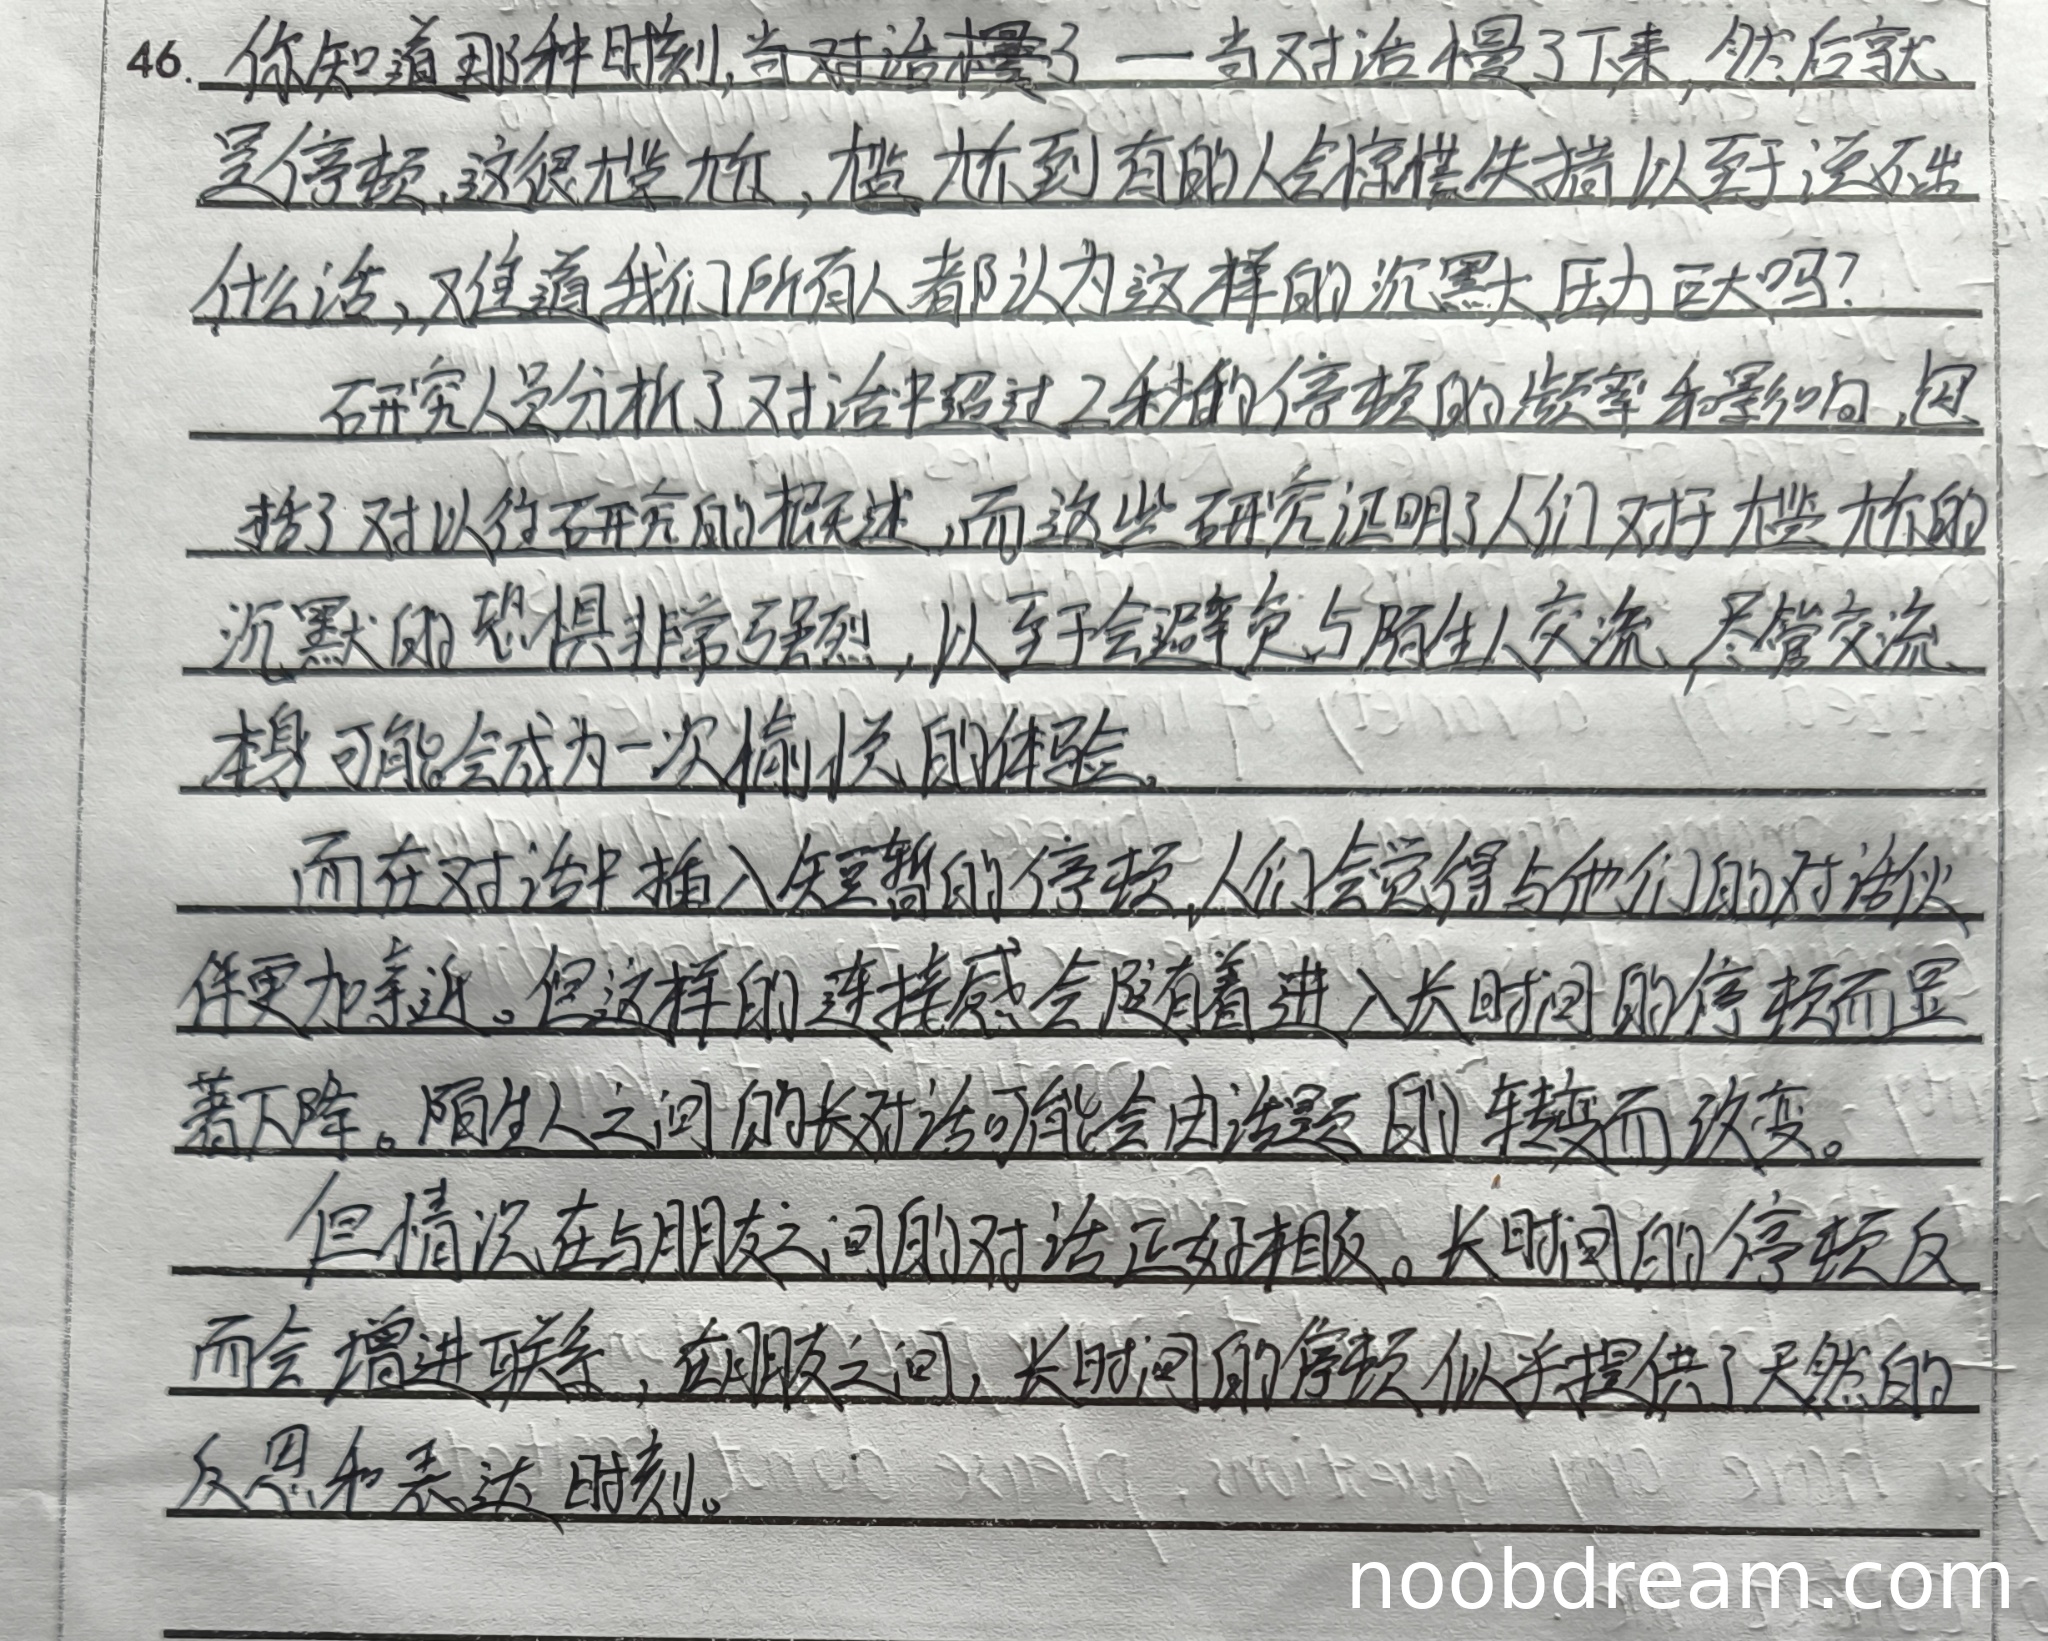 46. 你知道那种时刻,当对话慢了 — 当对话慢了下来,然后就
是停顿,这很尴尬,尴尬到有的人会惊慌失措以至于说不出
什么话,难道我们所有人都认为这样的沉默压力巨大吗?
研究人员分析了对话中超过2秒的停顿的频率和影响,包
括了对以往研究的概述,而这些研究证明了人们对于尴尬的
沉默的恐惧非常强烈,以至于会避免与陌生人交流,尽管交流
本身可能会成为一次愉悦的体验。
而在对话中插入短暂的停顿,人们会觉得与他们的对话伙
伴更加亲近。但这样的连接感会随着进入长时间的停顿而显
著下降。陌生人之间的长对话可能会由话题的转变而改变。
但情况在与朋友之间的对话正好相反。长时间的停顿反
而会增进联系,在朋友之间,长时间的停顿似乎提供了天然的
反思和表达时刻。
noobdream.com